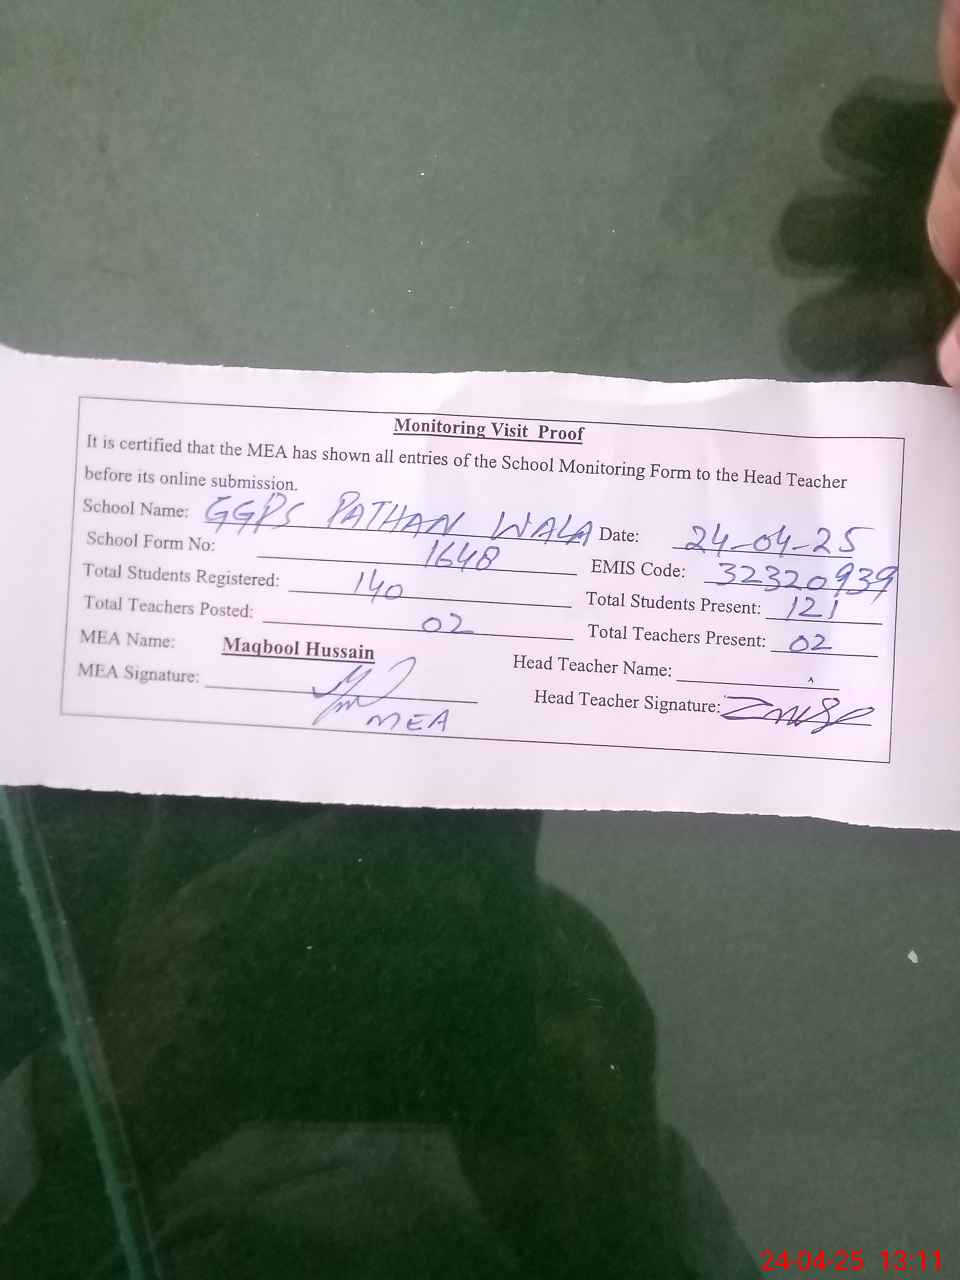 Monitoring Visit Proof
It is certified that the MEA has shown all entries of the School Monitoring Form to the Head Teacher
before its online submission.
School Name: GGPS PATHAN WALA Date: 24-04-25
School Form No: 1648 EMIS Code: 32320939
Total Students Registered: 140 Total Students Present: 121
Total Teachers Posted: 02 Total Teachers Present: 02
MEA Name: Maqbool Hussain Head Teacher Name:
MEA Signature: Head Teacher Signature:
MEA
24-04-25 13:11